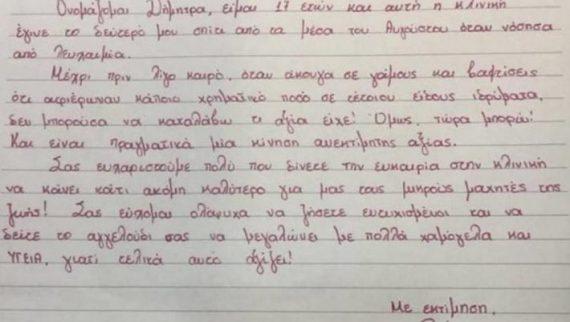 Ονομάζομαι Δήμητρα, είμαι 17 ετών και αυτή η κλινική
έγινε το δεύτερό μου σπίτι από τα μέσα του Αυγούστου όταν νόσησα
από λευχαιμία.
Μέχρι πριν λίγο καιρό, όταν άκουγα σε γάμους και βαφτίσεις
ότι αφιέρωναν κάποιο χρηματικό ποσό σε τέτοιου είδους ιδρύματα,
δεν μπορούσα να καταλάβω τι αξία είχε! Όμως, τώρα μπορώ!
Και είναι πραγματικά μία κίνηση ανεκτίμητης αξίας.
Σας ευχαριστούμε πολύ που δίνετε την ευκαιρία στην κλινική
να κάνει κάτι ακόμη καλύτερο για μας τους μικρούς μαχητές της
ζωής! Σας εύχομαι ολόψυχα να ζήσετε ευτυχισμένοι και να
δείτε το αγγελούδι σας να μεγαλώνει με πολλά χαμόγελα και
ΥΓΕΙΑ, γιατί τελικά αυτό αξίζει!
Με εκτίμηση,